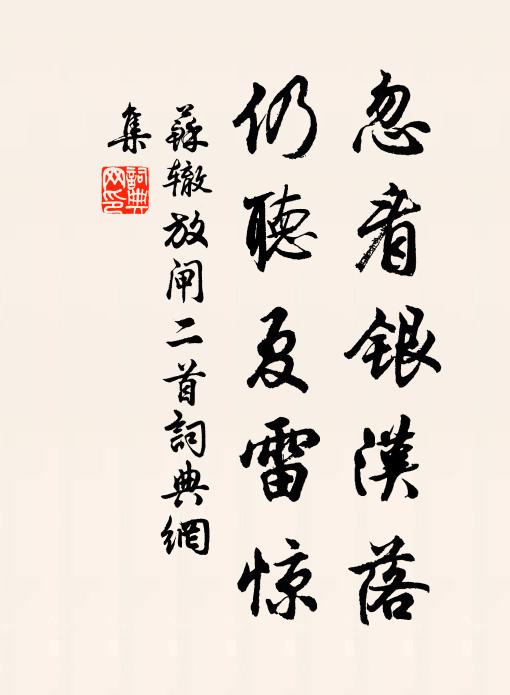 忽看银漢落
仍聽夏雷惊
蘇辙放闸二首詞典網
集
詞典
网印